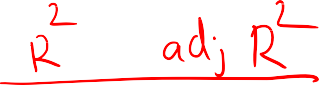 R² adj R²